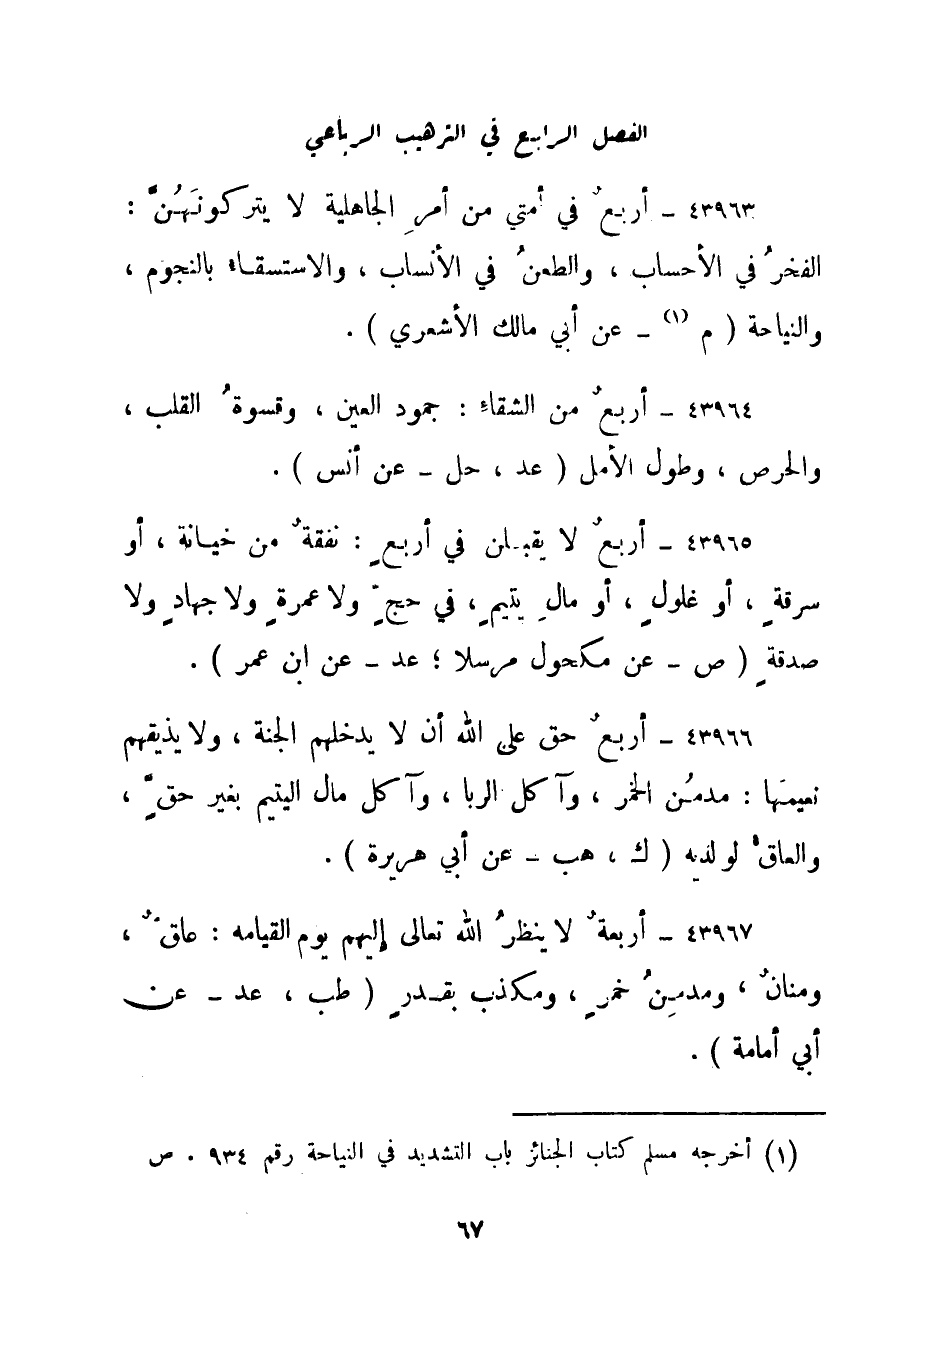 الفصل الرابع في الترهيب الرباعي
٤٣٩٦٣ ـ أربعٌ في أمتي من أمرِ الجاهلية لا يتركونَهُنَّ :
الفخرُ في الأحساب ، والطعنُ في الأنساب ، والاستسقاء بالنجوم ،
والنياحة ( م (١) ـ عن أبي مالك الأشعري ) .
٤٣٩٦٤ ـ أربعٌ من الشقاءِ : جمود العين ، وقسوةُ القلب ،
والحرص ، وطول الأمل ( عد ، حل ـ عن أنس ) .
٤٣٩٦٥ ـ أربعٌ لا يقبلن في أربعٍ : نفقةٌ من خيانة ، أو
سرقةٍ ، أو غلولٍ ، أو مالِ يتيمٍ ، في حجٍّ ولا عمرةٍ ولا جهادٍ ولا
صدقةٍ ( ص ـ عن مكحول مرسلا ؛ عد ـ عن ابن عمر ) .
٤٣٩٦٦ ـ أربعٌ حق على الله أن لا يدخلهم الجنة ، ولا يذيقهم
نعيمَها : مدمُن الخمر ، وآكل الربا ، وآكل مال اليتيم بغير حقٍّ ،
والعاقُ لوالديه ( ك ، هب ـ عن أبي هريرة ) .
٤٣٩٦٧ ـ أربعةٌ لا ينظرُ الله تعالى إليهم يوم القيامه : عاقٌّ ،
ومنانٌ ، ومدمِنُ خمرٍ ، ومكذب بقدرٍ ( طب ، عد ـ عن
أبي أمامة ) .
(١) أخرجه مسلم كتاب الجنائز باب التشديد في النياحة رقم ٩٣٤ . ص
٦٧